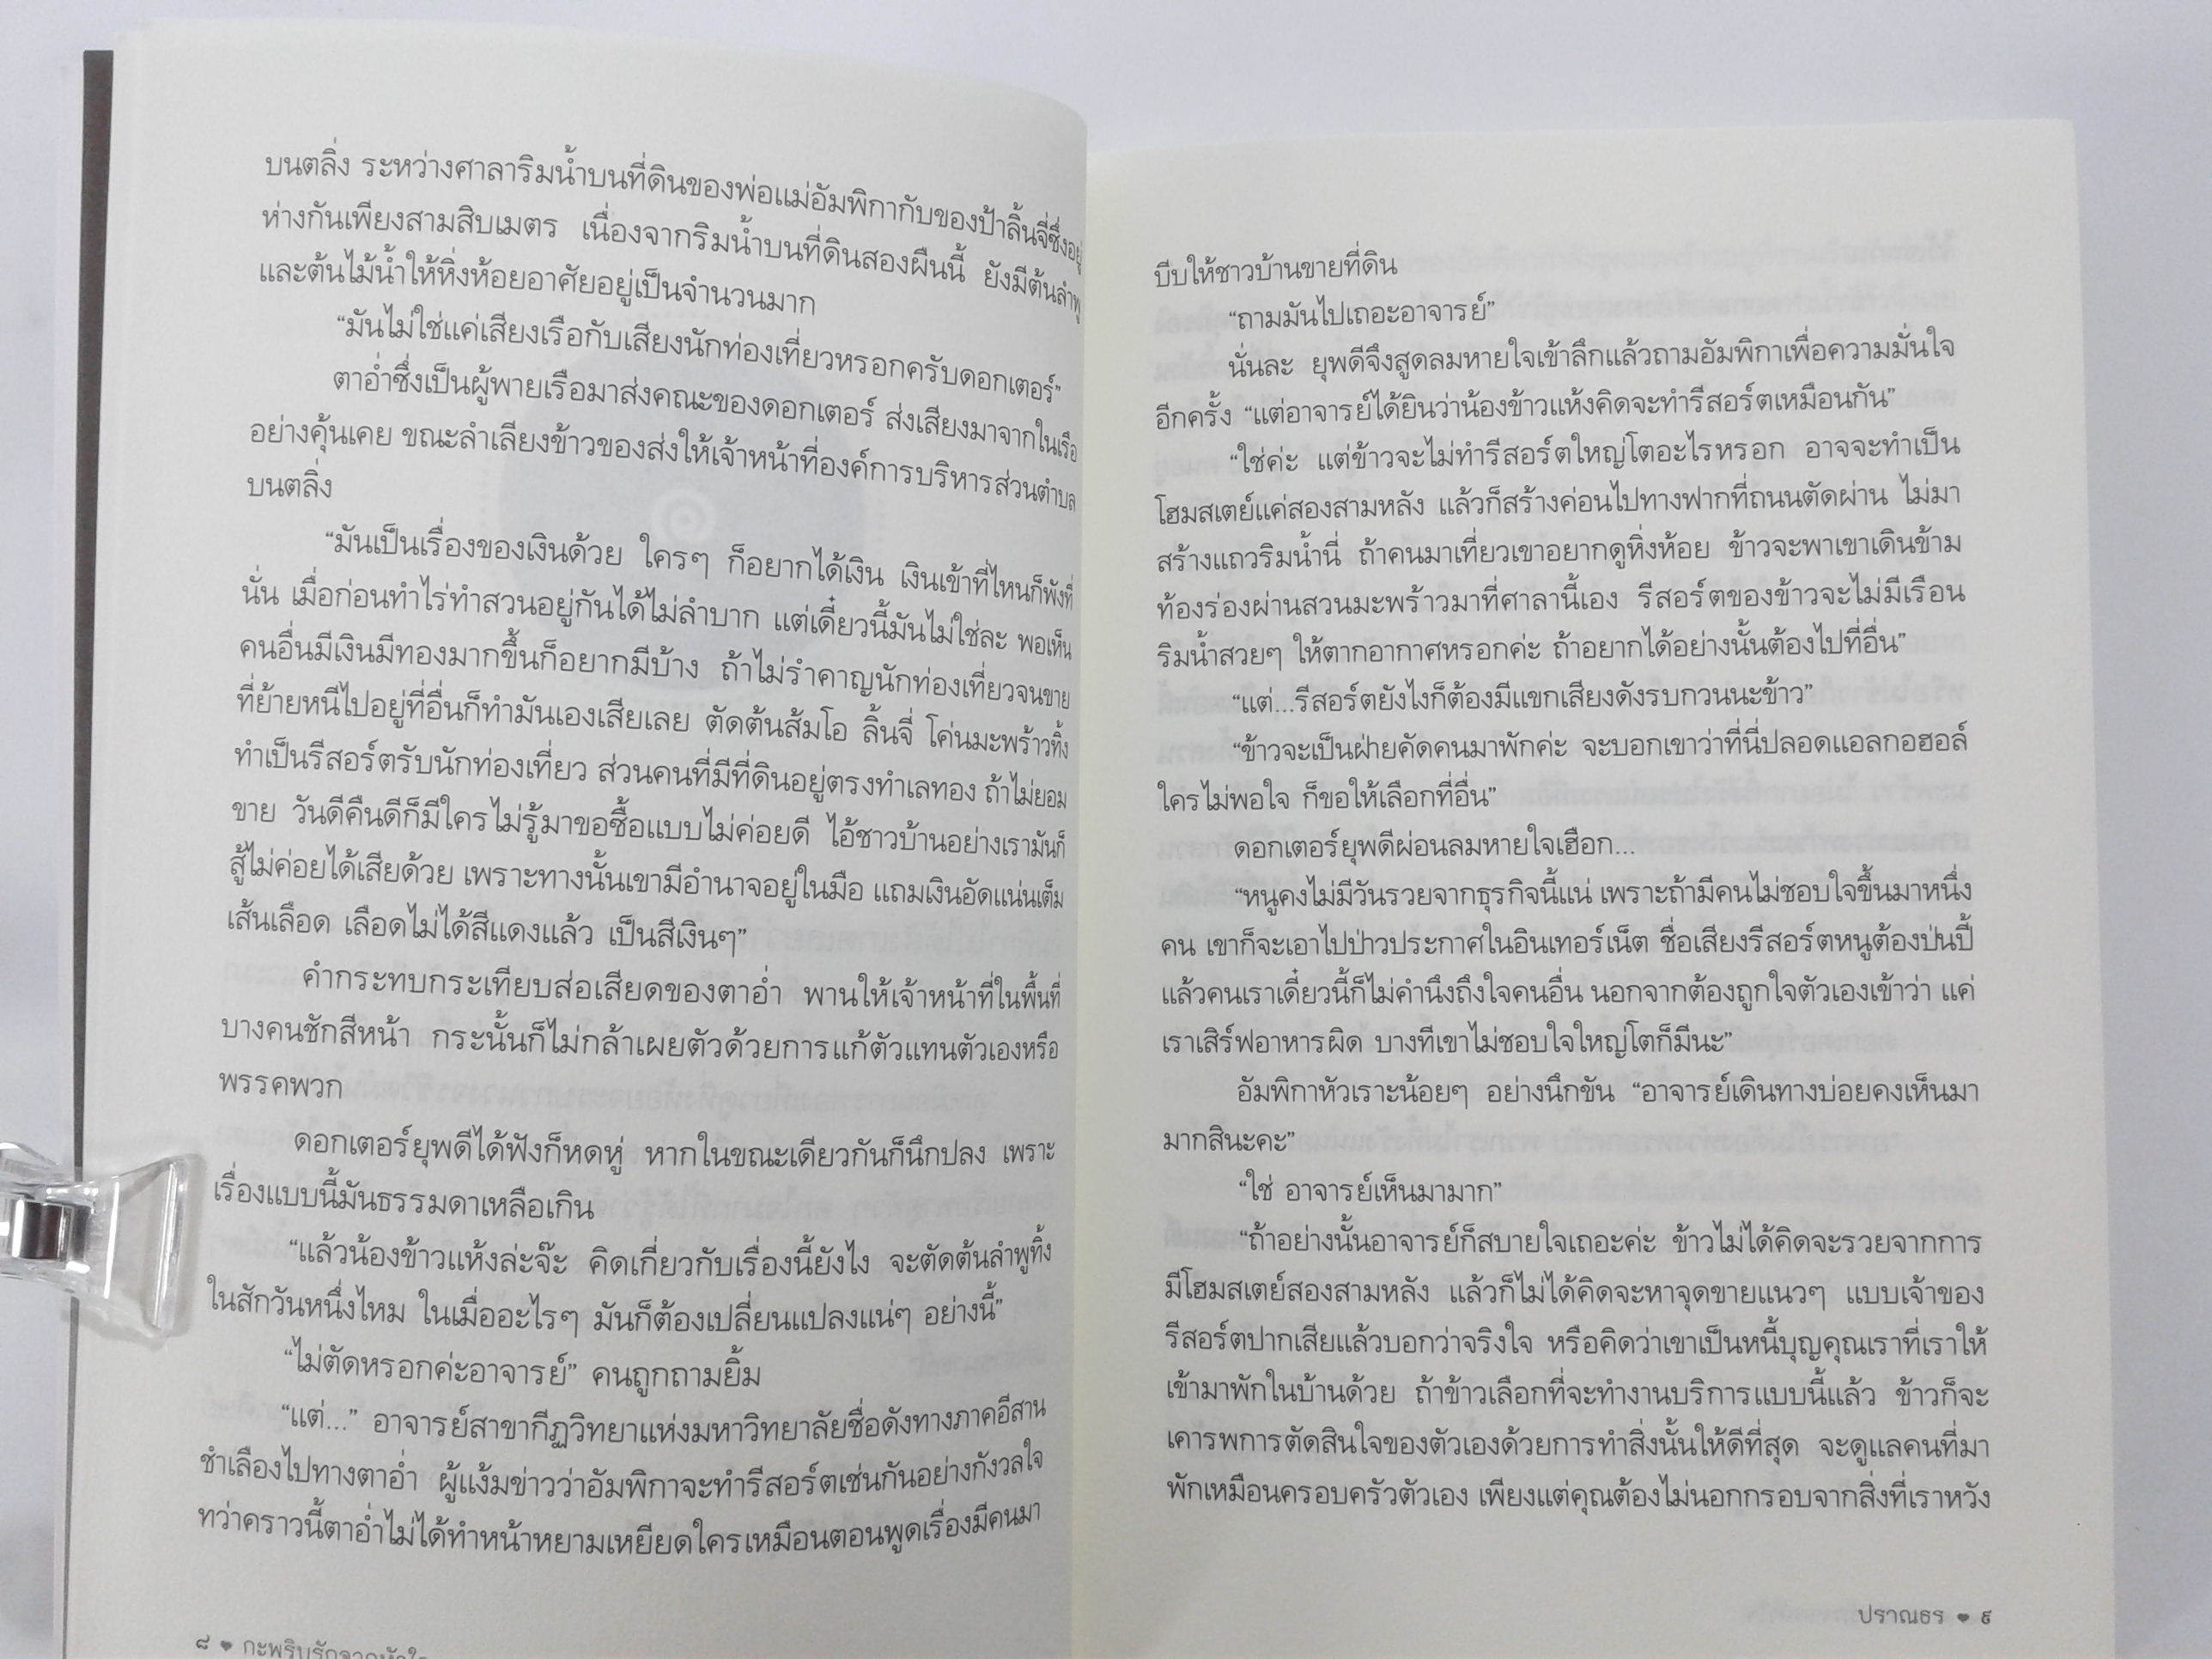 บนตลิ่ง ระหว่างศาลาริมน้ำบนที่ดินของพ่อแม่อัมพิกากับของป้าลิ้นจี่ซึ่งอยู่
ห่างกันเพียงสามสิบเมตร เนื่องจากริมน้ำบนที่ดินสองผืนนี้ ยังมีต้นลำพู
และต้นไม้น้ำให้หิ่งห้อยอาศัยอยู่เป็นจำนวนมาก
“มันไม่ใช่แค่เสียงเรือกับเสียงนักท่องเที่ยวหรอกครับดอกเตอร์”
ตาอ่ำซึ่งเป็นผู้พายเรือมาส่งคณะของดอกเตอร์ ส่งเสียงมาจากในเรือ
อย่างคุ้นเคย ขณะลำเลียงข้าวของส่งให้เจ้าหน้าที่องค์การบริหารส่วนตำบล
บนตลิ่ง
“มันเป็นเรื่องของเงินด้วย ใครๆ ก็อยากได้เงิน เงินเข้าที่ไหนก็พังที่
นั่น เมื่อก่อนทำไร่ทำสวนอยู่กันได้ไม่ลำบาก แต่เดี๋ยวนี้มันไม่ใช่ละ พอเห็น
คนอื่นมีเงินมีทองมากขึ้นก็อยากมีบ้าง ถ้าไม่รำคาญนักท่องเที่ยวจนขาย
ที่ย้ายหนีไปอยู่ที่อื่นก็ทำมันเองเสียเลย ตัดต้นส้มโอ ลิ้นจี่ โค่นมะพร้าวทิ้ง
ทำเป็นรีสอร์ตรับนักท่องเที่ยว ส่วนคนที่มีที่ดินอยู่ตรงทำเลทอง ถ้าไม่ยอม
ขาย วันดีคืนดีก็มีใครไม่รู้มาขอซื้อแบบไม่ค่อยดี ไอ้ชาวบ้านอย่างเรามันก็
สู้ไม่ค่อยได้เสียด้วย เพราะทางนั้นเขามีอำนาจอยู่ในมือ แถมเงินอัดแน่นเต็ม
เส้นเลือด เลือดไม่ได้สีแดงแล้ว เป็นสีเงินๆ”
คำกระทบกระเทียบส่อเสียดของตาอ่ำ พานให้เจ้าหน้าที่ในพื้นที่
บางคนชักสีหน้า กระนั้นก็ไม่กล้าเผยตัวด้วยการแก้ตัวแทนตัวเองหรือ
พรรคพวก
ดอกเตอร์ยุพดีได้ฟังก็หดหู่ หากในขณะเดียวกันก็นึกปลง เพราะ
เรื่องแบบนี้มันธรรมดาเหลือเกิน
“แล้วน้องข้าวแห้งล่ะจ๊ะ คิดเกี่ยวกับเรื่องนี้ยังไง จะตัดต้นลำพูทิ้ง
ในสักวันหนึ่งไหม ในเมื่ออะไรๆ มันก็ต้องเปลี่ยนแปลงแน่ๆ อย่างนี้”
“ไม่ตัดหรอกค่ะอาจารย์” คนถูกถามยิ้ม
“แต่...” อาจารย์สาขากีฏวิทยาแห่งมหาวิทยาลัยชื่อดังทางภาคอีสาน
ชำเลืองไปทางตาอ่ำ ผู้แง้มข่าวว่าอัมพิกาจะทำรีสอร์ตเช่นกันอย่างกังวลใจ
ทว่าคราวนี้ตาอ่ำไม่ได้ทำหน้าหยามเหยียดใครเหมือนตอนพูดเรื่องมีคนมา
๘ ♥ กะพริบรักจากหัวใจ
บีบให้ชาวบ้านขายที่ดิน
“ถามมันไปเถอะอาจารย์”
นั่นละ ยุพดีจึงสูดลมหายใจเข้าลึกแล้วถามอัมพิกาเพื่อความมั่นใจ
อีกครั้ง “แต่อาจารย์ได้ยินว่าน้องข้าวแห้งคิดจะทำรีสอร์ตเหมือนกัน”
“ใช่ค่ะ แต่ข้าวจะไม่ทำรีสอร์ตใหญ่โตอะไรหรอก อาจจะทำเป็น
โฮมสเตย์แค่สองสามหลัง แล้วก็สร้างค่อนไปทางฟากที่ถนนตัดผ่าน ไม่มา
สร้างแถวริมน้ำนี่ ถ้าคนมาเที่ยวเขาอยากดูหิ่งห้อย ข้าวจะพาเขาเดินข้าม
ท้องร่องผ่านสวนมะพร้าวมาที่ศาลานี้เอง รีสอร์ตของข้าวจะไม่มีเรือน
ริมน้ำสวยๆ ให้ตากอากาศหรอกค่ะ ถ้าอยากได้อย่างนั้นต้องไปที่อื่น”
“แต่...รีสอร์ตยังไงก็ต้องมีแขกเสียงดังรบกวนนะข้าว”
“ข้าวจะเป็นฝ่ายคัดคนมาพักค่ะ จะบอกเขาว่าที่นี่ปลอดแอลกอฮอล์
ใครไม่พอใจ ก็ขอให้เลือกที่อื่น”
ดอกเตอร์ยุพดีผ่อนลมหายใจเฮือก...
“หนูคงไม่มีวันรวยจากธุรกิจนี้แน่ เพราะถ้ามีคนไม่ชอบใจขึ้นมาหนึ่ง
คน เขาก็จะเอาไปป่าวประกาศในอินเทอร์เน็ต ชื่อเสียงรีสอร์ตหนูต้องป่นปี้
แล้วคนเราเดี๋ยวนี้ก็ไม่คำนึงถึงใจคนอื่น นอกจากต้องถูกใจตัวเองเข้าว่า แค่
เราเสิร์ฟอาหารผิด บางทีเขาไม่ชอบใจใหญ่โตก็มีนะ”
อัมพิกาหัวเราะน้อยๆ อย่างนึกขัน “อาจารย์เดินทางบ่อยคงเห็นมา
มากสินะคะ”
“ใช่ อาจารย์เห็นมามาก”
“ถ้าอย่างนั้นอาจารย์ก็สบายใจเถอะค่ะ ข้าวไม่ได้คิดจะรวยจากการ
มีโฮมสเตย์สองสามหลัง แล้วก็ไม่ได้คิดจะหาจุดขายแนวๆ แบบเจ้าของ
รีสอร์ตปากเสียแล้วบอกว่าจริงใจ หรือคิดว่าเขาเป็นหนี้บุญคุณเราที่เราให้
เข้ามาพักในบ้านด้วย ถ้าข้าวเลือกที่จะทำงานบริการแบบนี้แล้ว ข้าวก็จะ
เคารพการตัดสินใจของตัวเองด้วยการทำสิ่งนั้นให้ดีที่สุด จะดูแลคนที่มา
พักเหมือนครอบครัวตัวเอง เพียงแต่คุณต้องไม่นอกกรอบจากสิ่งที่เราหวัง
ปราณธร ♥ ๙